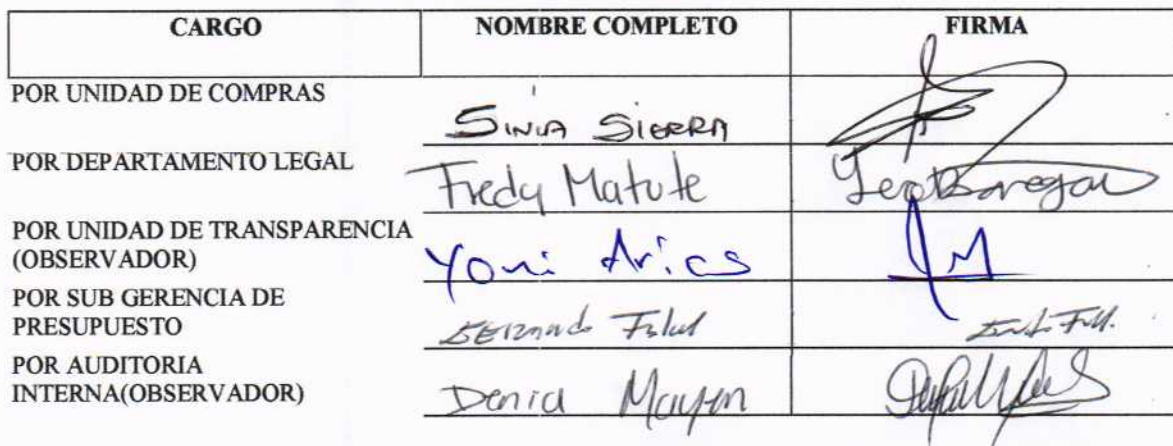 CARGO NOMBRE COMPLETO FIRMA
POR UNIDAD DE COMPRAS
Sinia Sierra
POR DEPARTAMENTO LEGAL
Fredy Matute
POR UNIDAD DE TRANSPARENCIA
(OBSERVADOR)
Yoni Arias
POR SUB GERENCIA DE
PRESUPUESTO
POR AUDITORIA
INTERNA(OBSERVADOR)